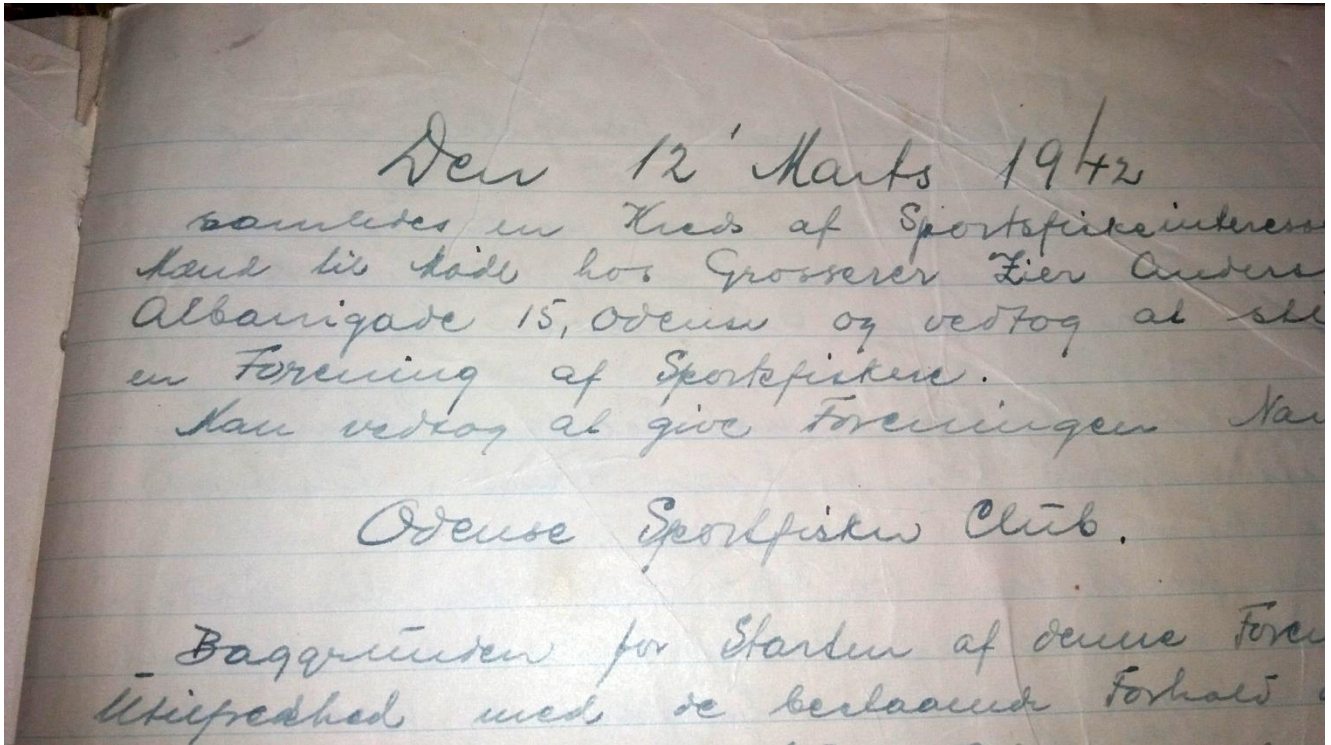 Den 12' Marts 1942
samledes en Kreds af Sportsfiskeinteresse
Mænd til Møde hos Grosserer Zier Anders
Albanigade 15, Odense og vedtog at sti
en Forening af Sportsfiskere.
Man vedtog at give Foreningen Nav
Odense Sportsfisker Club.
Baggrunden for Starten af denne Foren
Utilfredshed med de bestaaende Forhold